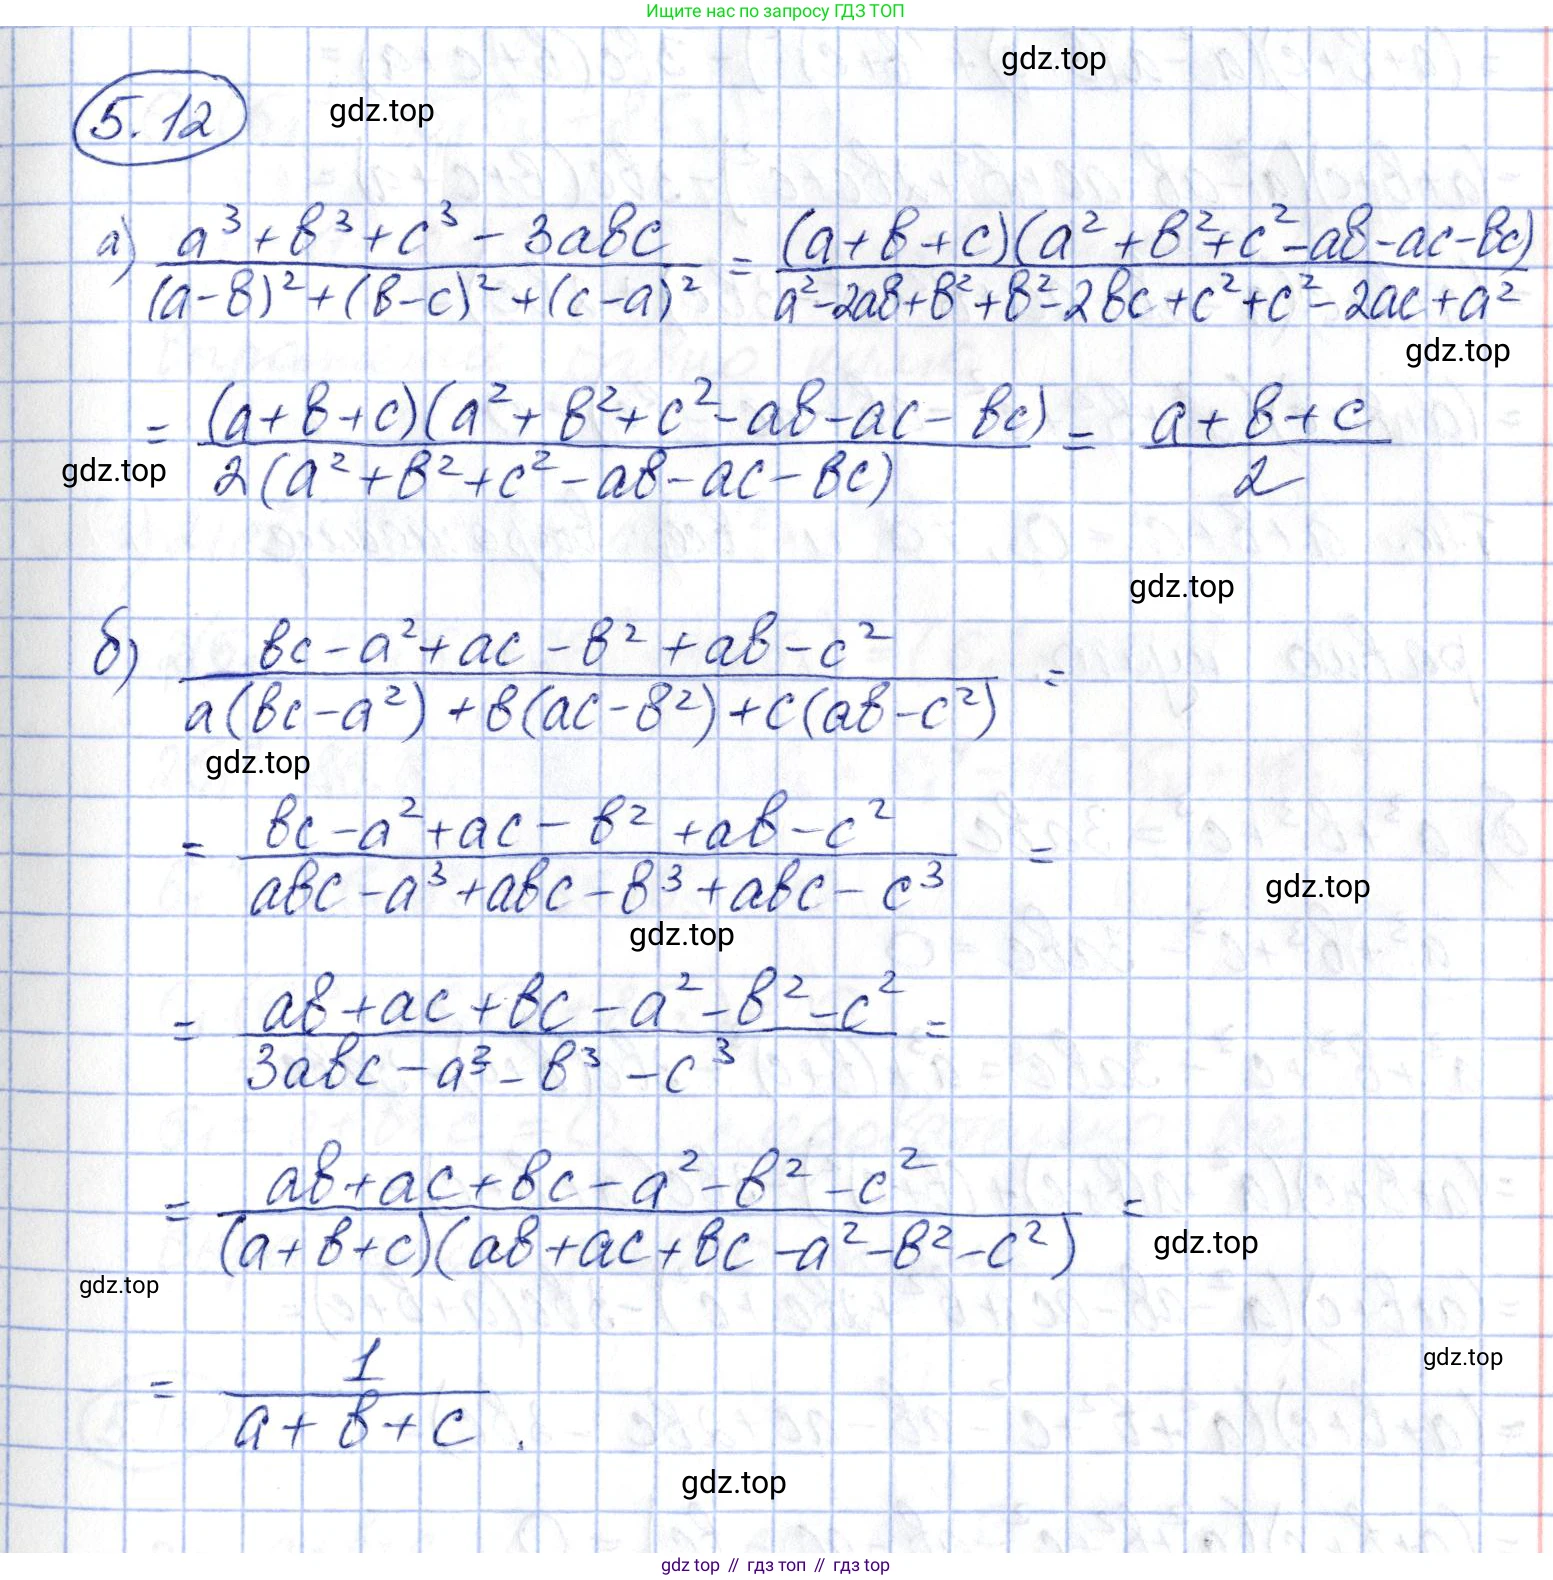 Ищите нас по запросу ГДЗ ТОП
gdz.top
5.12 gdz.top
а) (a³+b³+c³-3abc)/((a-b)²+(b-c)²+(c-a)²) = ((a+b+c)(a²+b²+c²-ab-ac-bc))/(a²-2ab+b²+b²-2bc+c²+c²-2ac+a²)
gdz.top
= ((a+b+c)(a²+b²+c²-ab-ac-bc))/(2(a²+b²+c²-ab-ac-bc)) = (a+b+c)/2
gdz.top
gdz.top
б) (bc-a²+ac-b²+ab-c²)/(a(bc-a²)+b(ac-b²)+c(ab-c²)) =
gdz.top
= (bc-a²+ac-b²+ab-c²)/(abc-a³+abc-b³+abc-c³) =
gdz.top
gdz.top
= (ab+ac+bc-a²-b²-c²)/(3abc-a³-b³-c³) =
= (ab+ac+bc-a²-b²-c²)/((a+b+c)(ab+ac+bc-a²-b²-c²)) =
gdz.top
gdz.top
gdz.top
= 1/(a+b+c).
gdz.top
gdz top // гдз топ // gdz top